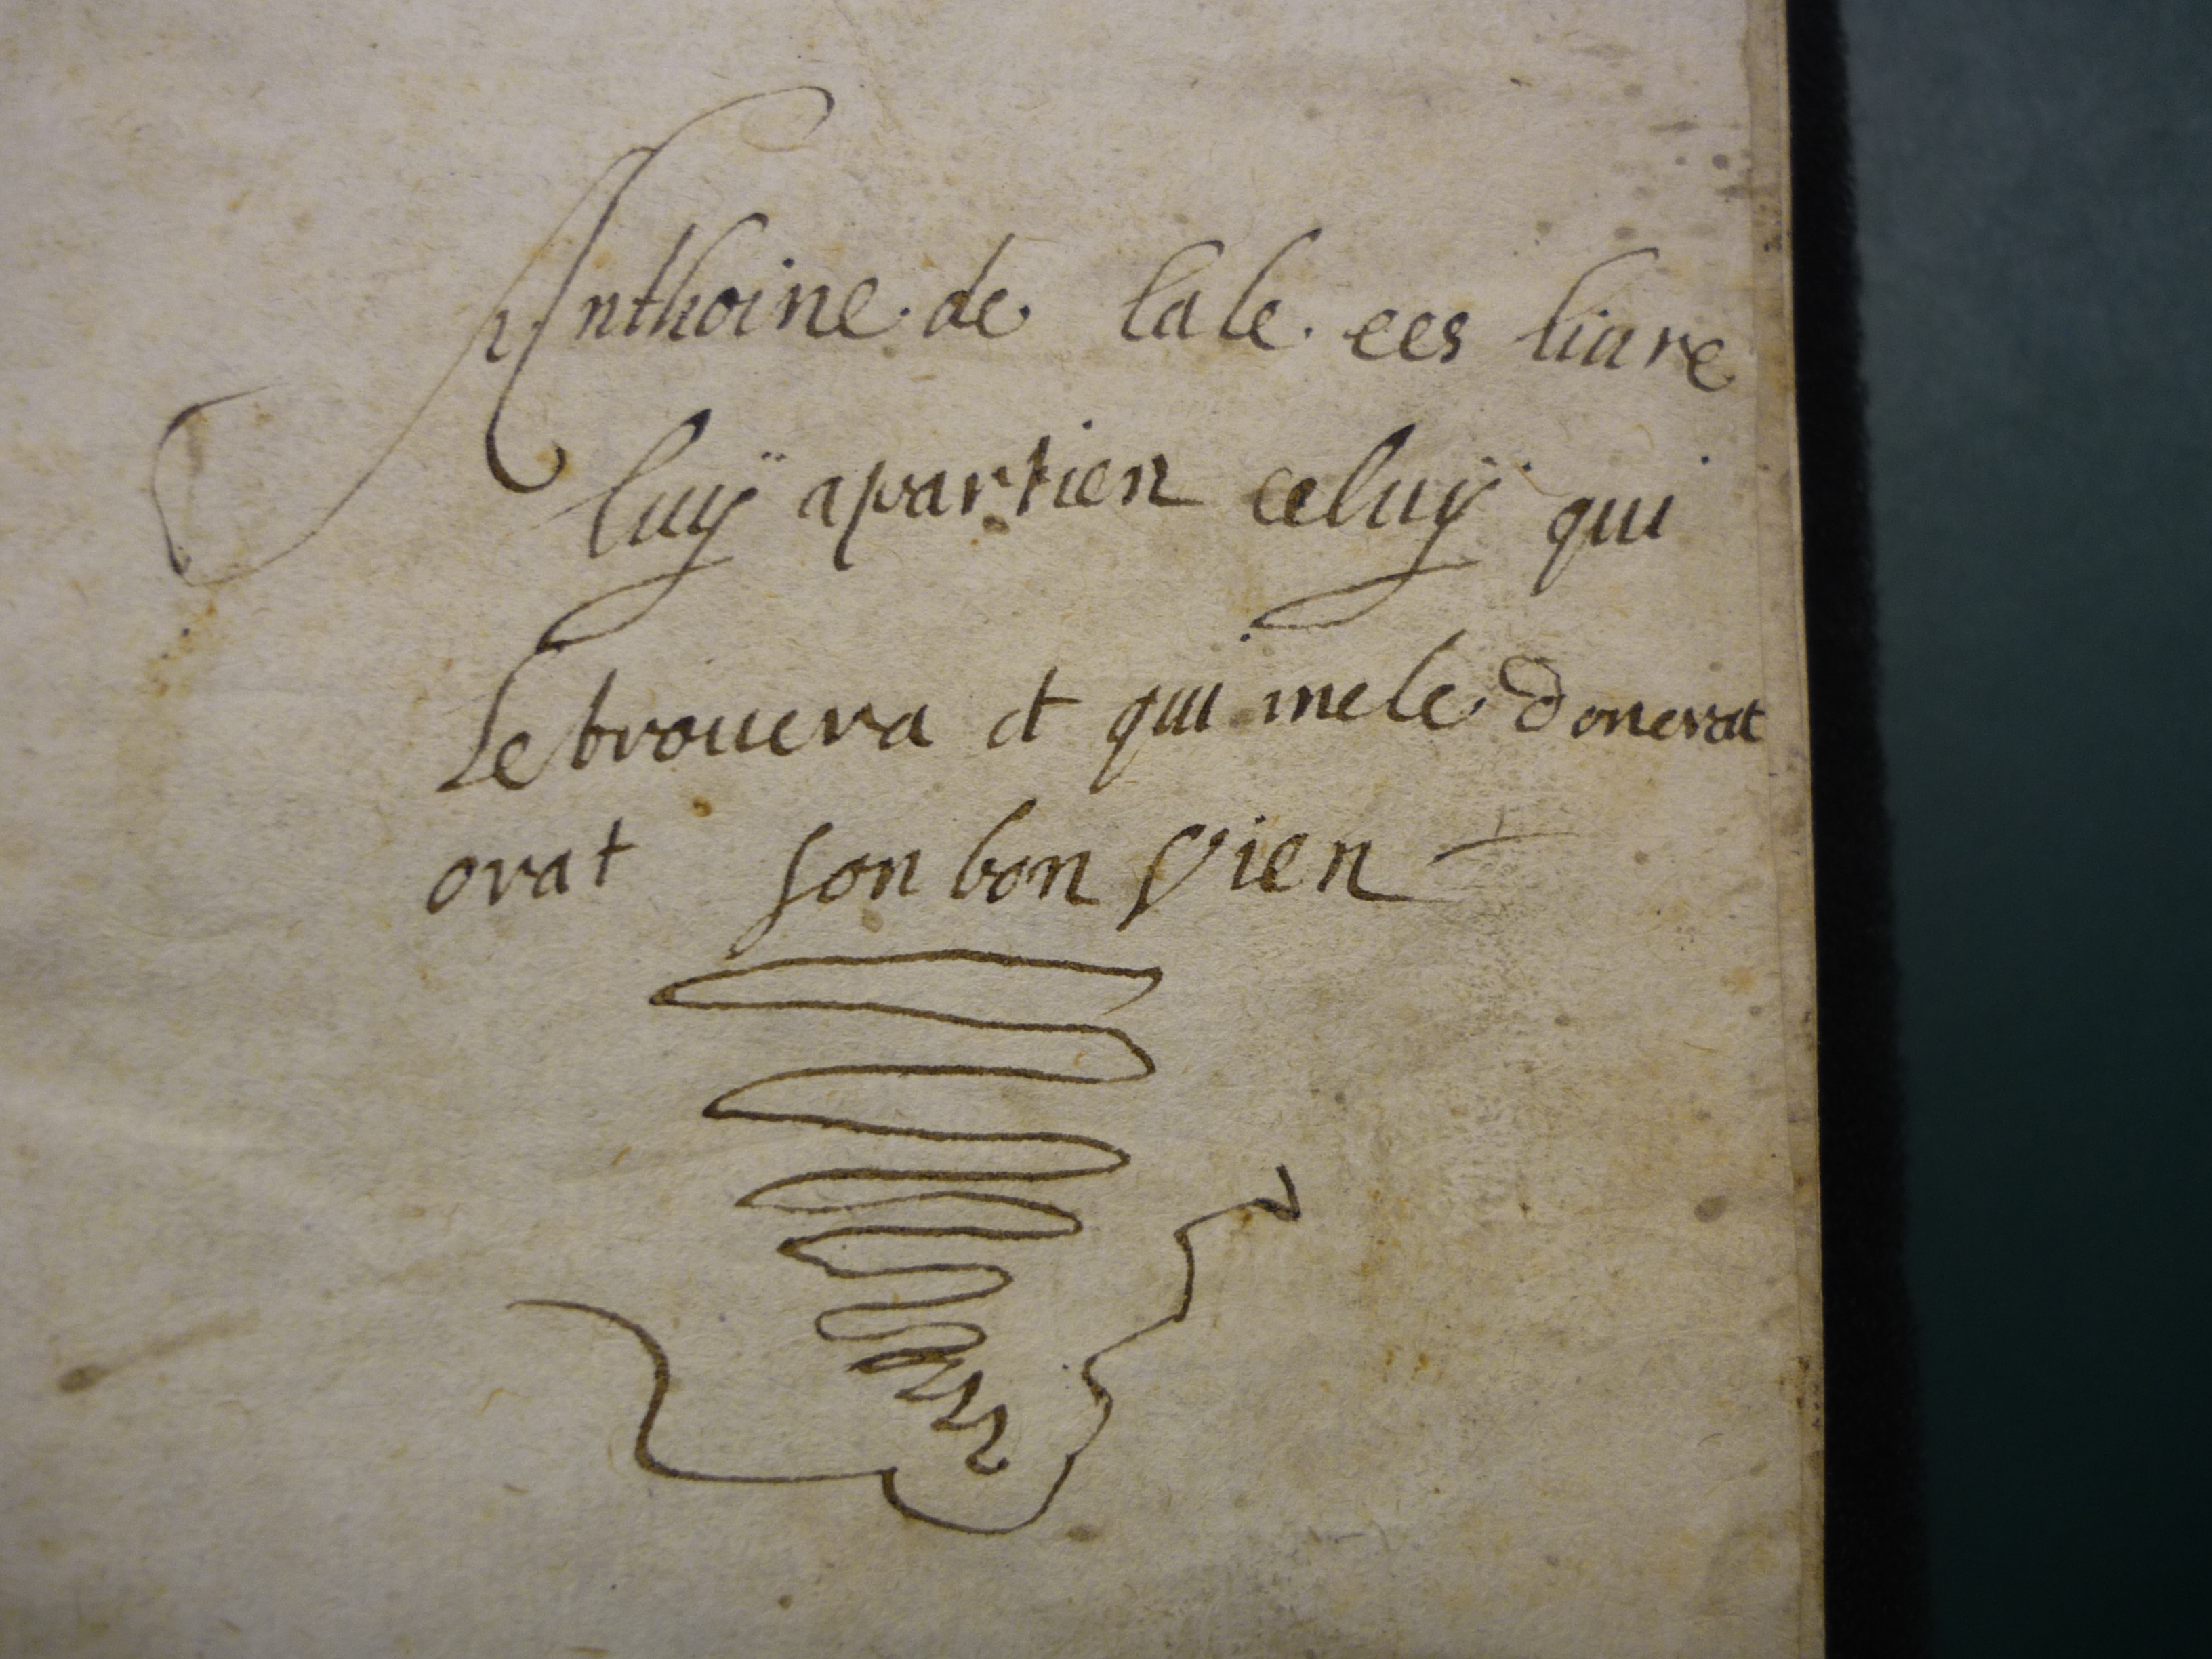 Anthoine de lale ees liure
luÿ apartien celuÿ qui
Le trouera et qui me le donerat
orat son bon vien